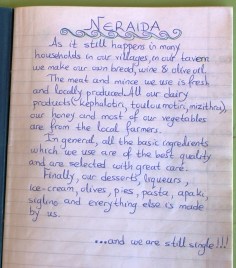 NERAIDA
As it still happens in many
households in our villages, in our tavern
we make our own bread, wine & olive oil.
The meat and mince we use is fresh
and locally produced. All our dairy
products (kephalotiri, touloumotiri, mizithra),
our honey and most of our vegetables
are from the local farmers.
In general, all the basic ingredients
which we use are of the best quality
and are selected with great care.
Finally, our desserts, liqueurs,
ice-cream, olives, pies, pasta, apaki,
siglino and everything else is made
by us.
...and we are still single!!!